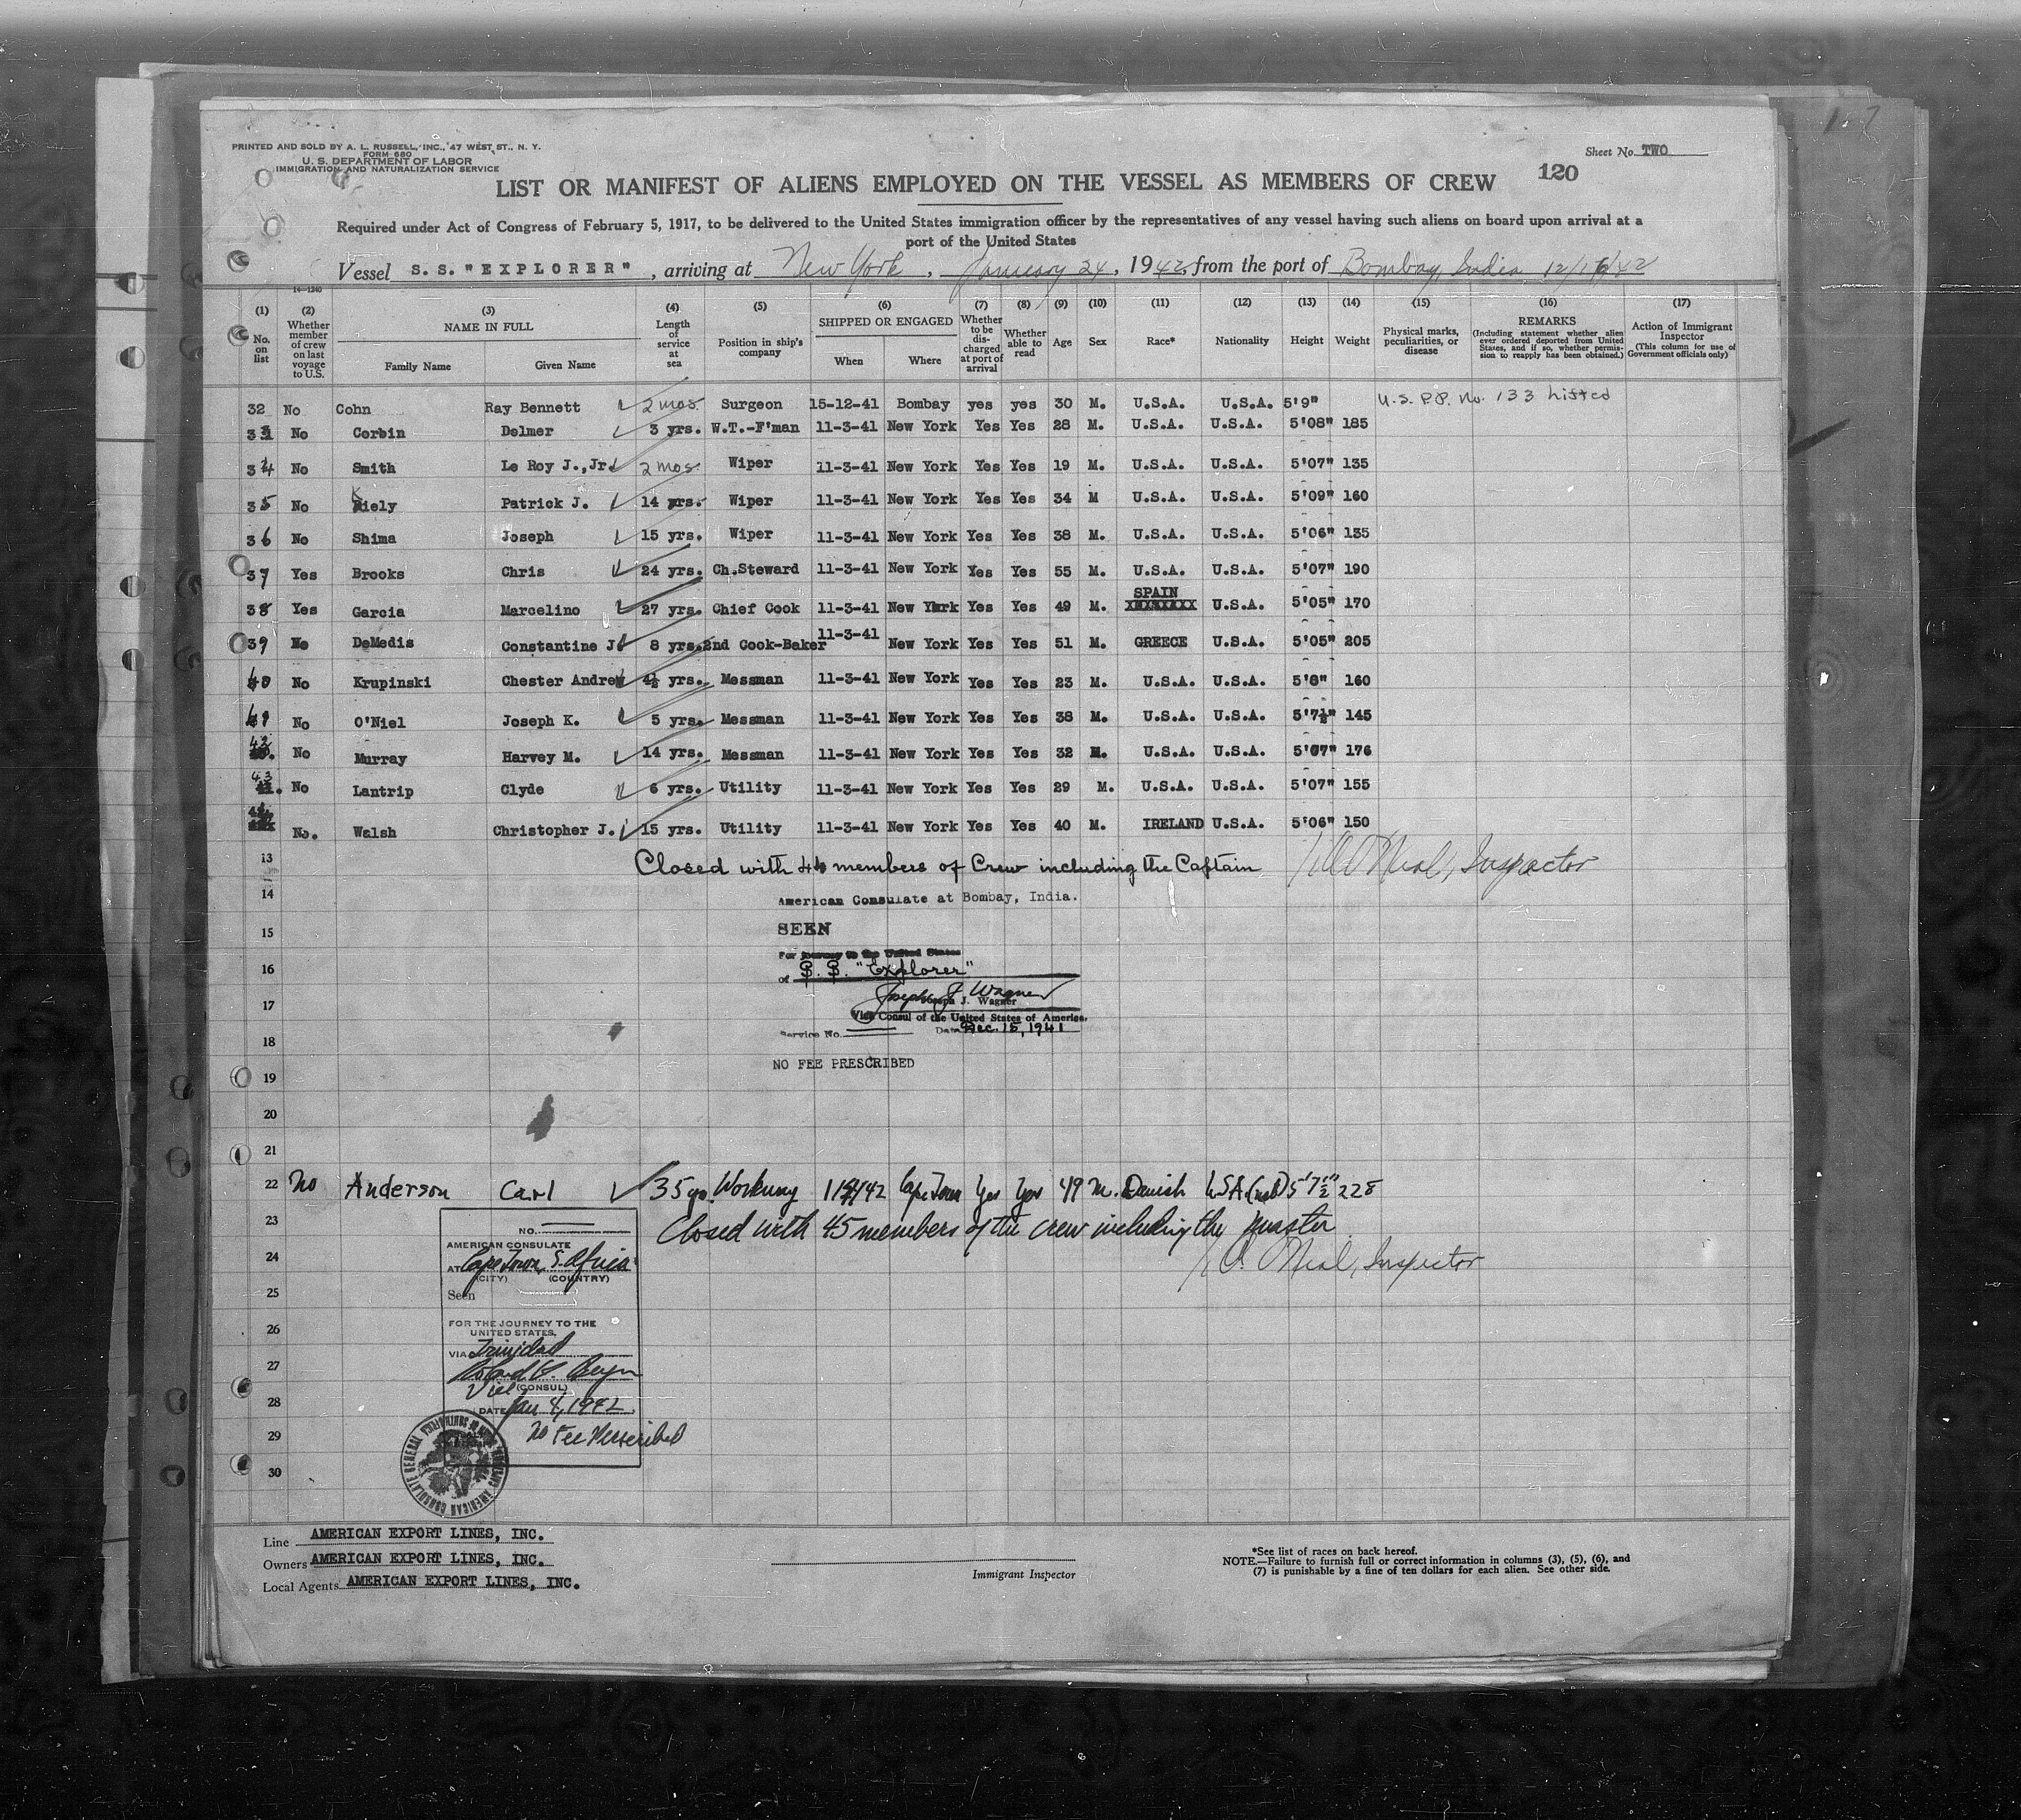 1 7
PRINTED AND SOLD BY A. L. RUSSELL, INC., 47 WEST ST., N. Y.
FORM 680
U. S. DEPARTMENT OF LABOR
IMMIGRATION AND NATURALIZATION SERVICE
Sheet No. TWO
LIST OR MANIFEST OF ALIENS EMPLOYED ON THE VESSEL AS MEMBERS OF CREW 120
Required under Act of Congress of February 5, 1917, to be delivered to the United States immigration officer by the representatives of any vessel having such aliens on board upon arrival at a
port of the United States
Vessel S.S. "EXPLORER", arriving at New York, January 24, 1942, from the port of Bombay, India 12/16/42
14-1240
(1) (2) (3) (4) (5) (6) (7) (8) (9) (10) (11) (12) (13) (14) (15) (16) (17)
No. on list
Whether member of crew on last voyage to U.S.
NAME IN FULL
Family Name
Given Name
Length of service at sea
Position in ship's company
SHIPPED OR ENGAGED
When
Where
Whether to be discharged at port of arrival
Whether able to read
Age
Sex
Race*
Nationality
Height
Weight
Physical marks, peculiarities, or disease
REMARKS
(Including statement whether alien ever ordered deported from United States, and if so, whether permission to reapply has been obtained.)
Action of Immigrant Inspector
(This column for use of Government officials only)
32 No Cohn Ray Bennett 2 mos. Surgeon 15-12-41 Bombay yes yes 30 M. U.S.A. U.S.A. 5'9" U.S. P.P. No. 133 Listed
33 No Corbin Delmer 3 yrs. W.T.-F'man 11-3-41 New York Yes Yes 28 M. U.S.A. U.S.A. 5'08" 185
34 No Smith Le Roy J.,Jr. 2 mos. Wiper 11-3-41 New York Yes Yes 19 M. U.S.A. U.S.A. 5'07" 135
35 No Kiely Patrick J. 14 yrs. Wiper 11-3-41 New York Yes Yes 34 M U.S.A. U.S.A. 5'09" 160
36 No Shima Joseph 15 yrs. Wiper 11-3-41 New York Yes Yes 38 M. U.S.A. U.S.A. 5'06" 135
37 Yes Brooks Chris 24 yrs. Ch.Steward 11-3-41 New York Yes Yes 55 M. U.S.A. U.S.A. 5'07" 190
38 Yes Garcia Marcelino 27 yrs. Chief Cook 11-3-41 New York Yes Yes 49 M. SPAIN U.S.A. 5'05" 170
39 No DeMedis Constantine J. 8 yrs. 2nd Cook-Baker 11-3-41 New York Yes Yes 51 M. GREECE U.S.A. 5'05" 205
40 No Krupinski Chester Andrew 4½ yrs. Messman 11-3-41 New York Yes Yes 23 M. U.S.A. U.S.A. 5'8" 160
41 No O'Niel Joseph K. 5 yrs. Messman 11-3-41 New York Yes Yes 38 M. U.S.A. U.S.A. 5'7½" 145
42 No Murray Harvey M. 14 yrs. Messman 11-3-41 New York Yes Yes 32 M. U.S.A. U.S.A. 5'07" 176
43 No Lantrip Clyde 6 yrs. Utility 11-3-41 New York Yes Yes 29 M. U.S.A. U.S.A. 5'07" 155
44 No. Walsh Christopher J. 15 yrs. Utility 11-3-41 New York Yes Yes 40 M. IRELAND U.S.A. 5'06" 150
13 Closed with 44 members of Crew including the Captain O'Neal, Inspector
14 American Consulate at Bombay, India.
15 SEEN
For journey to the United States
16 of S. S. "Explorer"
Joseph J. Wagner
17 Joseph J. Wagner
Vice Consul of the United States of America.
Service No. Date Dec. 15, 1941
18
19 NO FEE PRESCRIBED
20
21
22 No Anderson Carl 35 yrs. Workway 1/9/42 Cape Town Yes Yes 49 M. Danish USA (nat) 5'7½" 228
23 Closed with 45 members of the crew including the master
O'Neal, Inspector
NO.
AMERICAN CONSULATE
24 AT Cape Town, S. Africa
(CITY) (COUNTRY)
25 Seen
26 FOR THE JOURNEY TO THE
UNITED STATES,
27 VIA Trinidad
Vice (CONSUL)
28 DATE Jan 8, 1942
29 No Fee Prescribed
30
AMERICAN CONSULATE GENERAL
Line AMERICAN EXPORT LINES, INC.
Owners AMERICAN EXPORT LINES, INC.
Local Agents AMERICAN EXPORT LINES, INC.
Immigrant Inspector
*See list of races on back hereof.
NOTE.—Failure to furnish full or correct information in columns (3), (5), (6), and
(7) is punishable by a fine of ten dollars for each alien. See other side.